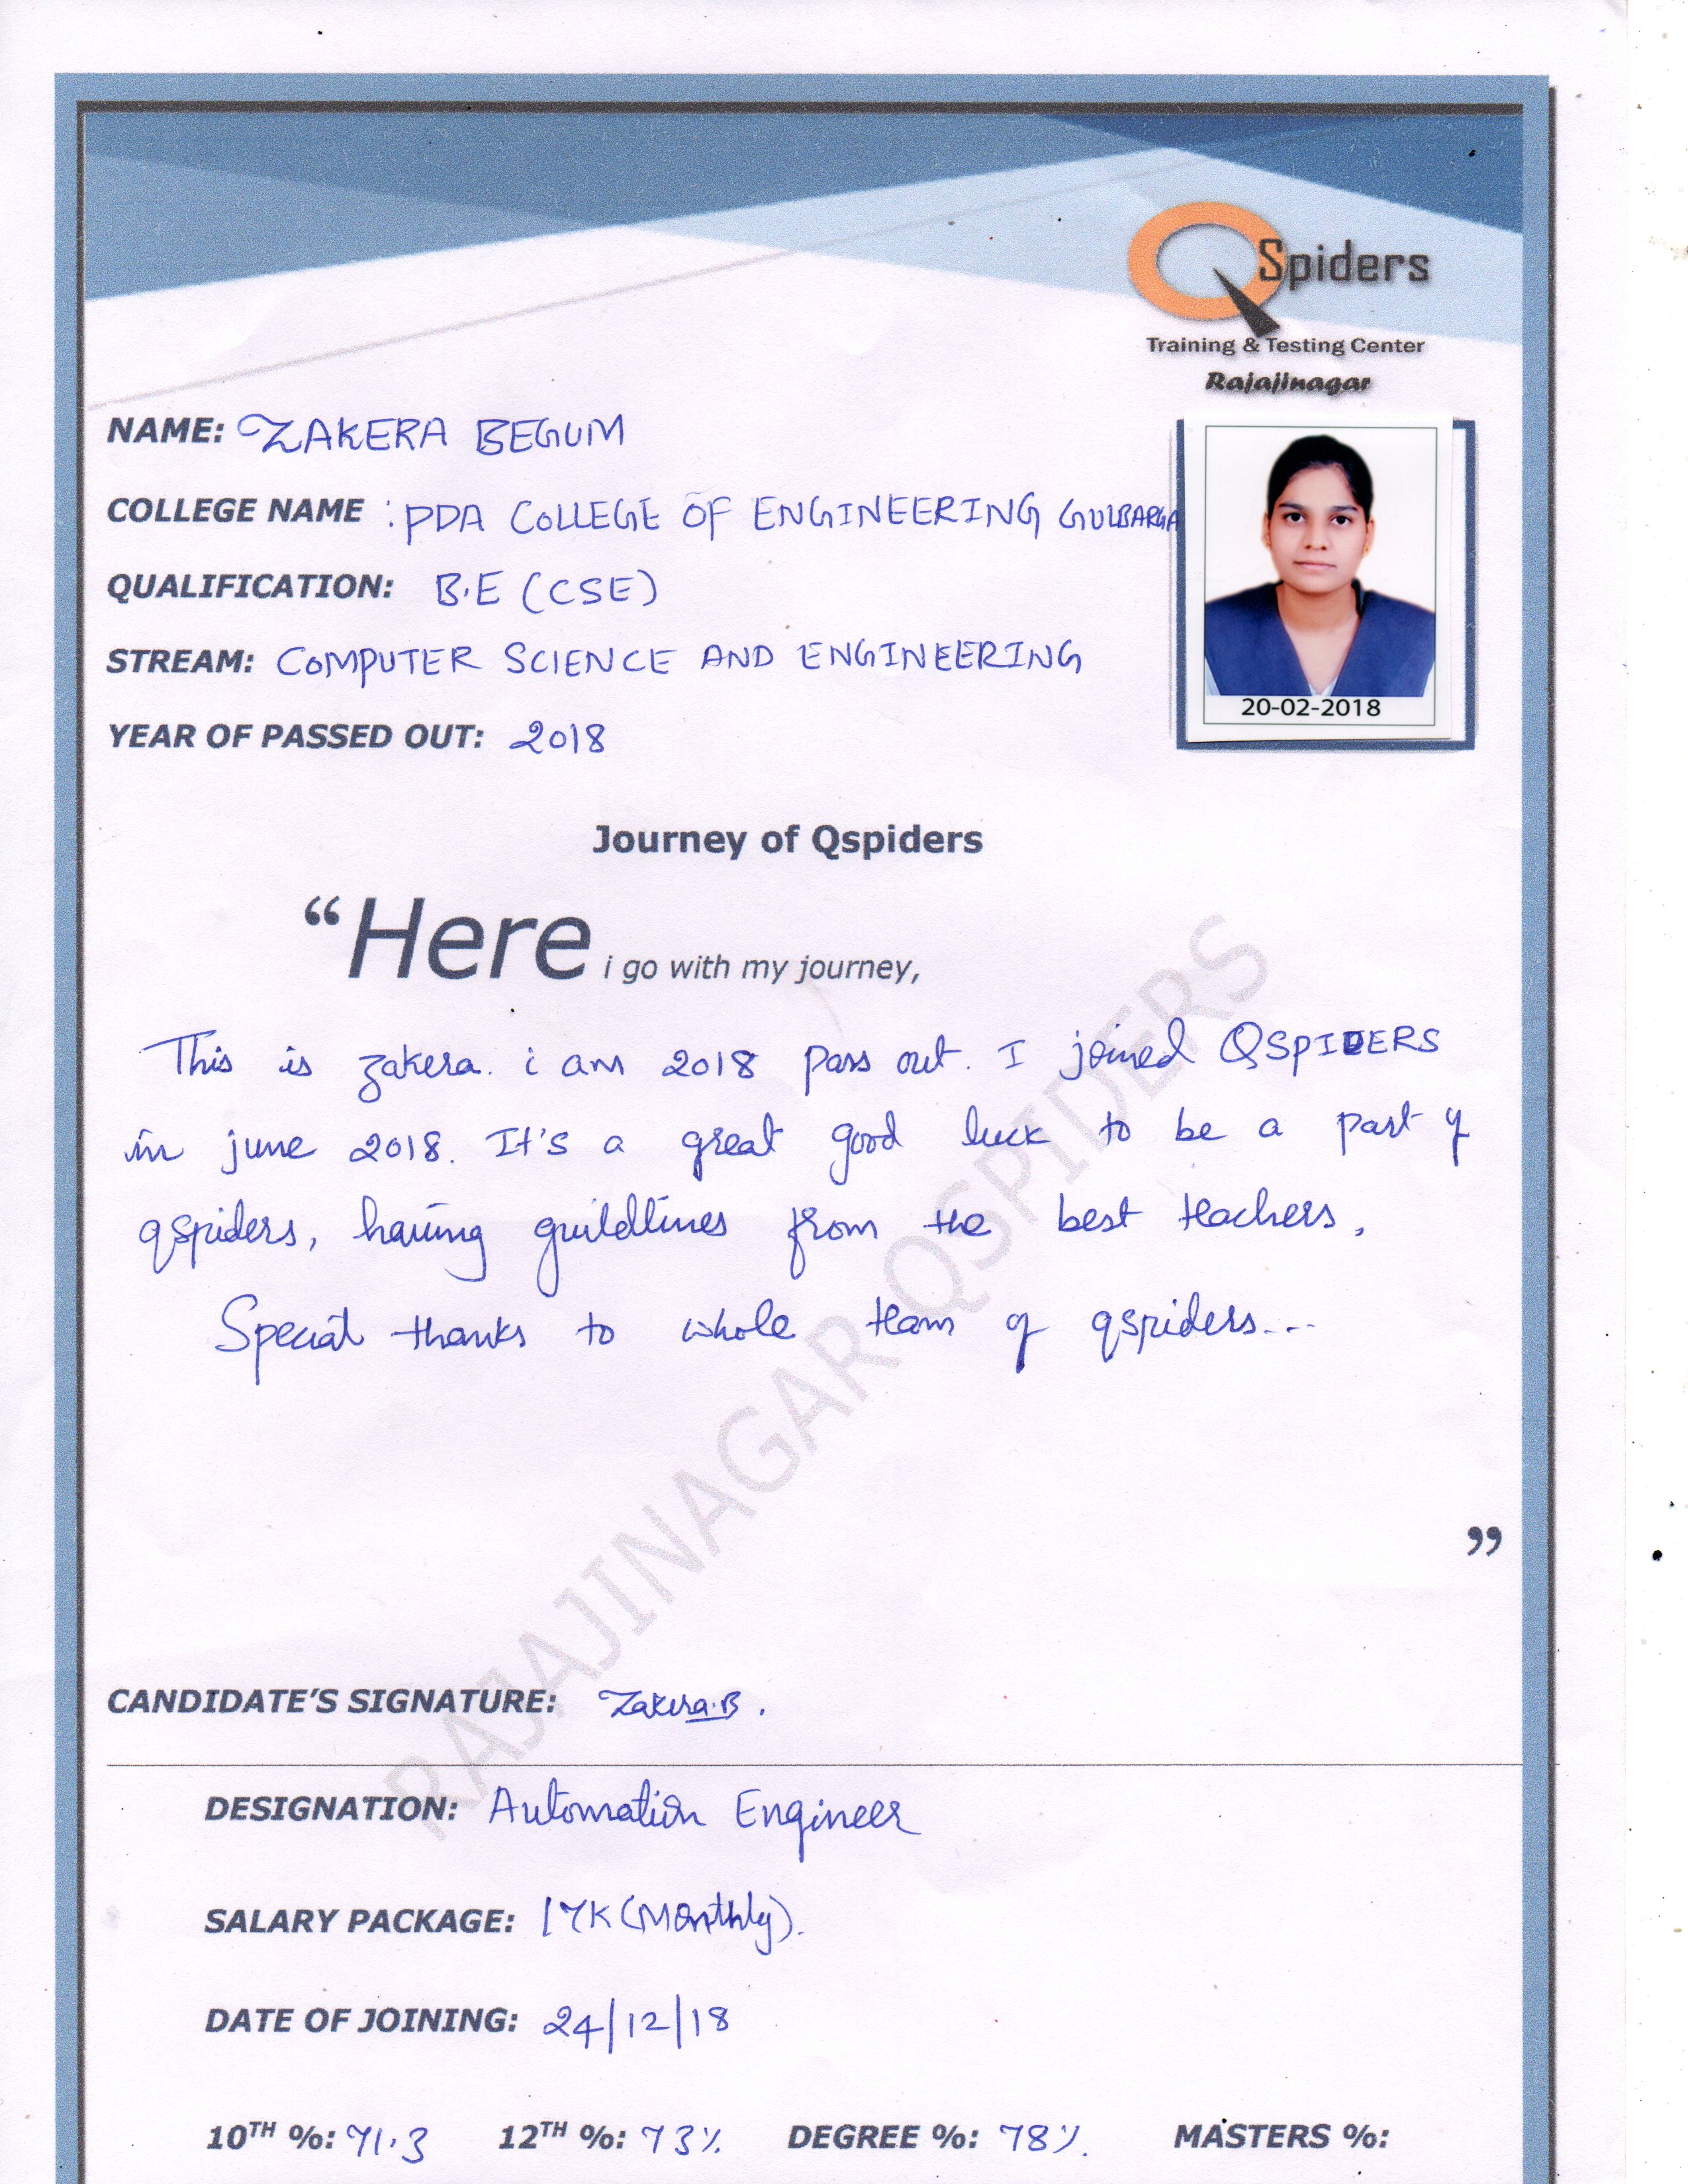 QSpiders
Training & Testing Center
Rajajinagar
NAME: ZAKERA BEGUM
COLLEGE NAME : PDA COLLEGE OF ENGINEERING GULBARGA
QUALIFICATION: B.E (CSE)
STREAM: COMPUTER SCIENCE AND ENGINEERING
YEAR OF PASSED OUT: 2018
20-02-2018
Journey of Qspiders
“Here i go with my journey,
This is zakera. i am 2018 pass out. I joined QSPIDERS
in june 2018. It's a great good luck to be a part of
qspiders, having guildlines from the best teachers,
Special thanks to whole team of qspiders...
”
RAJAJINAGAR QSPIDERS
CANDIDATE’S SIGNATURE: Zakera.B.
DESIGNATION: Automation Engineer
SALARY PACKAGE: 17K (Monthly).
DATE OF JOINING: 24/12/18
10TH %: 71.3 12TH %: 73% DEGREE %: 78% MASTERS %: